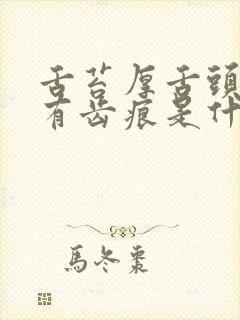 舌苔厚舌頭
有齿痕是什
馬冬棗